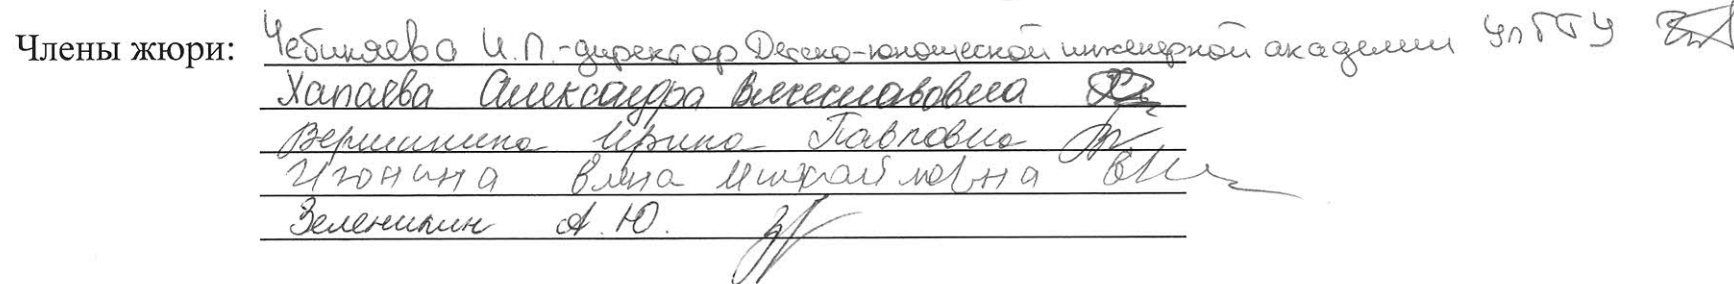 Члены жюри: Чебикяева И.П.-директор Детско-юношеской инженерной академии УлГТУ
Хапаева Александра Вячеславовна
Вершинина Ирина Павловна
Игонина Елена Михайловна
Зеленикин А.Ю.